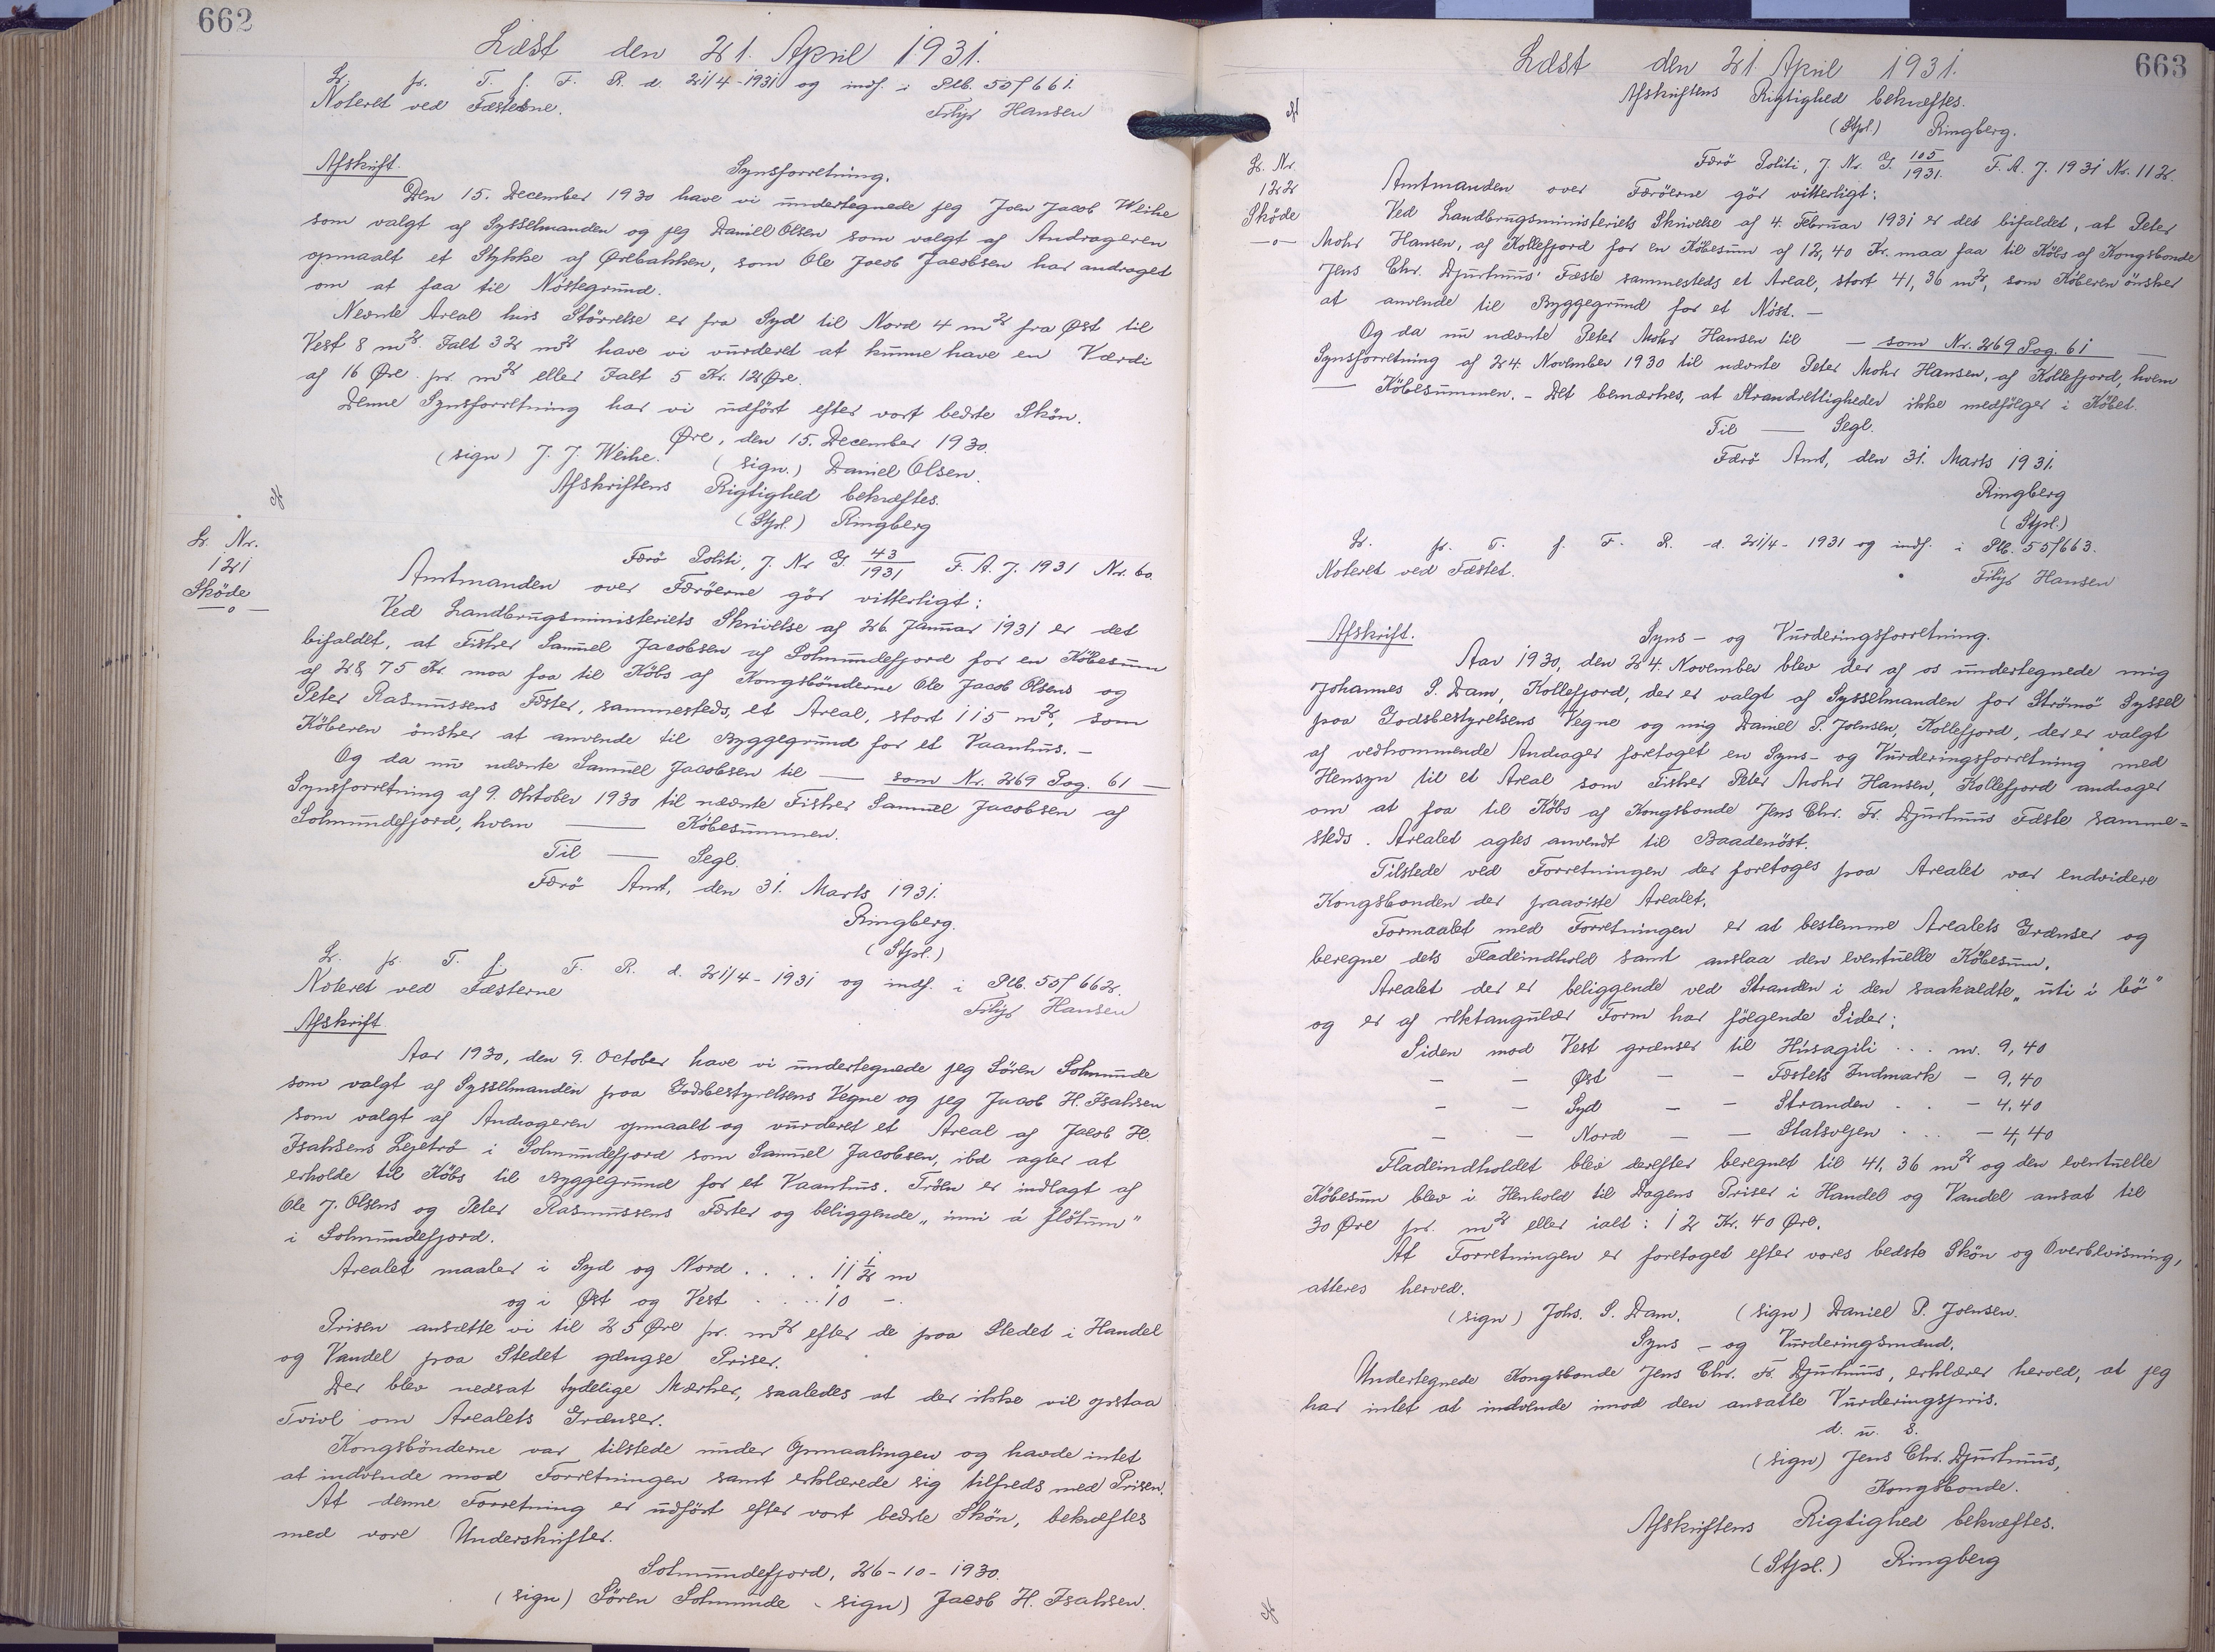 662
Læst den 21. April 1931.
L. pr. T. f. F. R. d. 21/4-1931 og indf. i Ptb. 55f 661.
Noteret ved Fæsterne. Filip Hansen
Afskrift. Synsforretning.
Den 15. December 1930 have vi undertegnede jeg Joen Jacob Weihe
som valgt af Sysselmanden og jeg Daniel Olsen som valgt af Andrageren
opmaalt et Stykke af Ørebakken, som Ole Jacob Jacobsen har andraget
om at faa til Nöstegrund.
Nævnte Areal hvis Störrelse er fra Syd til Nord 4 m² fra Øst til
Vest 8 m². Ialt 32 m² have vi vurderet at kunne have en Værdi
af 16 Øre pr. m² eller Ialt 5 Kr. 12 Øre.
Denne Synsforretning har vi udfört efter vort bedste Skön.
Øre, den 15. December 1930.
(sign) J. J. Weihe. (sign.) Daniel Olsen.
Afskriftens Rigtighed bekræftes.
(Stpl.) Ringberg
L. Nr.
121
Sköde
—o—
Færö Politi, J. Nr. G. 43/1931 F. A. J. 1931 Nr. 60.
Amtmanden over Færöerne gör vitterligt:
Ved Landbrugsministeriets Skrivelse af 26. Januar 1931 er det
bifaldet, at Fisker Samuel Jacobsen af Solmundefjord for en Köbesum
af 28,75 Kr. maa faa til Köbs af Kongsbönderne Ole Jacob Olsens og
Peter Rasmussens Fæster, sammesteds, et Areal, stort 115 m², som
Köberen önsker at anvende til Byggegrund for et Vaanhus. —
Og da nu nævnte Samuel Jacobsen til — som Nr. 269 Pag. 61 —
Synsforretning af 9. Oktober 1930 til nævnte Fisker Samuel Jacobsen af
Solmundefjord, hvem — Köbesummen.
Til — Segl.
Færö Amt, den 31. Marts 1931.
Ringberg.
(Stpl.)
L. pr. T. f. F. R. d. 21/4-1931 og indf. i Ptb. 55f 662.
Noteret ved Fæsterne Filip Hansen
Afskrift
Aar 1930, den 9. October have vi undertegnede jeg Sören Solmunde
som valgt af Sysselmanden paa Godsbestyrelsens Vegne og jeg Jacob H. Isaksen
som valgt af Andrageren opmaalt og vurderet et Areal af Jacob H.
Isaksens Lejetrö i Solmundefjord som Samuel Jacobsen, ibd agter at
erholde til Köbs til Byggegrund for et Vaanhus. Tröen er indlagt af
Ole J. Olsens og Peter Rasmussens Fæster og beliggende „inni á fløtum"
i Solmundefjord.
Arealet maaler i Syd og Nord . . . . 11 1/2 m
og i Øst og Vest . . . . 10 —.
Prisen ansætte vi til 25 Øre pr. m² efter de paa Stedet i Handel
og Vandel paa Stedet gængse Priser.
Der blev nedsat tydelige Mærker, saaledes at der ikke vil opstaa
Tvivl om Arealets Grænser.
Kongsbönderne var tilstede under Opmaalingen og havde intet
at indvende mod Forretningen samt erklærede sig tilfreds med Prisen.
At denne Forretning er udfört efter vort bedste Skön, bekræftes
med vore Underskrifter.
Solmundefjord, 26-10-1930.
(sign) Sören Solmunde (sign) Jacob H. Isaksen.
663
Læst den 21. April 1931.
Afskriftens Rigtighed bekræftes.
(Stpl.) Ringberg.
L. Nr.
122
Sköde
—o—
Færö Politi, J. Nr. G. 105/1931. F. A. J. 1931 Nr. 112.
Amtmanden over Færöerne gör vitterligt:
Ved Landbrugsministeriets Skrivelse af 4. Februar 1931 er det bifaldet, at Peter
Mohr Hansen, af Kollefjord for en Köbesum af 12,40 Kr. maa faa til Köbs af Kongsbonde
Jens Chr. Djurhuus' Fæste sammesteds et Areal, stort 41,36 m², som Köberen önsker
at anvende til Byggegrund for et Nöst. —
Og da nu nævnte Peter Mohr Hansen til — som Nr. 269 Pag. 61 —
Synsforretning af 24. November 1930 til nævnte Peter Mohr Hansen, af Kollefjord, hvem
— Köbesummen. — Det bemærkes, at Strandretligheder ikke medfölger i Köbet.
Til — Segl.
Færö Amt, den 31. Marts 1931.
Ringberg
(Stpl.)
L. pr. T. f. F. R. d. 21/4-1931 og indf. i Ptb. 55f663.
Noteret ved Fæstet. Filip Hansen
Afskrift. Syns- og Vurderingsforretning.
Aar 1930, den 24. November blev der af os undertegnede mig
Johannes S. Dam, Kollefjord, der er valgt af Sysselmanden for Strömö Syssel
paa Godsbestyrelsens Vegne og mig Daniel P. Joensen, Kollefjord, der er valgt
af vedkommende Andrager foretaget en Syns- og Vurderingsforretning med
Hensyn til et Areal som Fisker Peter Mohr Hansen, Kollefjord andrager
om at faa til Köbs af Kongsbonde Jens Chr. Fr. Djurhuus Fæste samme=
steds. Arealet agtes anvendt til Baadenöst.
Tilstede ved Forretningen der foretoges paa Arealet var endvidere
Kongsbonden der paaviste Arealet.
Formaalet med Forretningen er at bestemme Arealets Grænser og
beregne dets Fladeindhold samt anslaa den eventuelle Köbesum.
Arealet der er beliggende ved Stranden i den saakaldte „uti i bö"
og er af rektangulær Form har fölgende Sider:
Siden mod Vest grænser til Húsagili . . . m. 9,40
— — Øst — — Fæstets Indmark — 9,40
— — Syd — — Stranden . . — 4,40
— — Nord — — Statsvejen . . . — 4,40
Fladeindholdet blev derefter beregnet til 41,36 m² og den eventuelle
Köbesum blev i Henhold til Dagens Priser i Handel og Vandel ansat til
30 Øre pr. m² eller ialt: 12 Kr. 40 Øre.
At Forretningen er foretaget efter vores bedste Skön og Overbevisning,
atteres herved.
(sign) Johs. S. Dam. (sign) Daniel P. Joensen.
Syns- og Vurderingsmænd.
Undertegnede Kongsbonde Jens Chr. Fr. Djurhuus, erklærer herved, at jeg
har intet at indvende imod den ansatte Vurderingspris.
d. u. S.
(sign) Jens Chr. Djurhuus,
Kongsbonde.
Afskriftens Rigtighed bekræftes.
(Stpl.) Ringberg